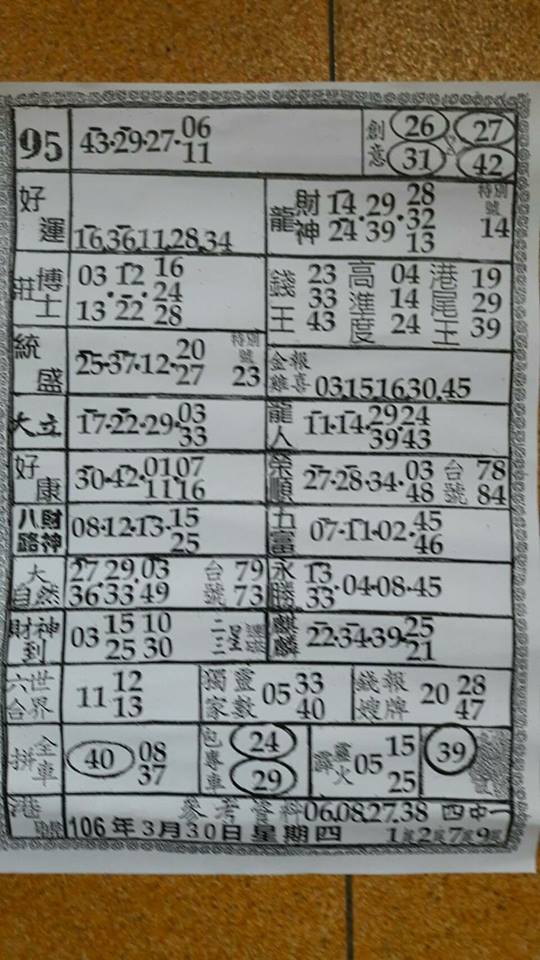 95 43·29·27·06 11 創意 26 27 31 42
好運 16,36,11,28,34
龍 財神 14·29·28 24·39·32 13 特別號 14
莊 博士 03·12·16 24 13·22·28
錢王 23 33 43 高準度 04 14 24 港尾王 19 29 39
統盛 25·37·12·20 27 特別號 23
金報雞喜 03,15,16,30,45
大立 17·22·29·03 33
龍人 11·14·29·24 39·43
好康 30·42·01·07 11·16
榮順 27·28·34·03 48 台號 78 84
八路財神 08·12·13·15 25
五富 07·11·02·45 46
大自然 27·29·03 36·33·49 台號 79 73
永勝 13 33·04·08·45
財神到 03 15 10 25 30 二三星
麒麟 22·34·39·25 21
六合世界 11 12 13
獨家靈數 05 33 40
錢嫂報牌 20 28 47
拼全車 40 08 37
包專車 24 29
霹靈火 05 15 25
39
港 參考資料 06,08,27,38 四中一
106年3月30日星期四 1 2 7 9